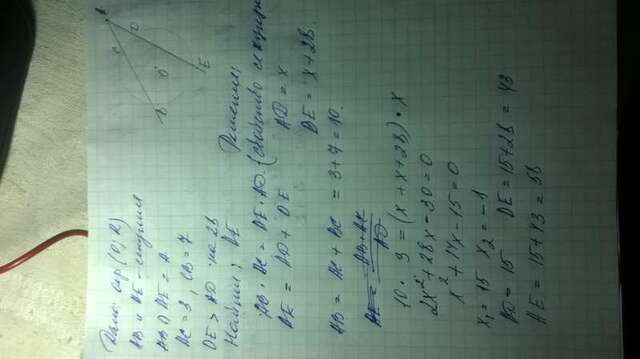 Дано: окр (O; R)
AB и AE - секущие
AB ∩ AE = A
AC = 3 CB = 7
DE > AD на 28
Найти: AE
Решение:
AB · AC = AE · AD (свойство секущих
AE = AD + DE AD = x
DE = x + 28
AB = AC + BC = 3 + 7 = 10.
10 · 3 = (x + x + 28) · x
2x² + 28x - 30 = 0
x² + 14x - 15 = 0
x₁ = 15 x₂ = -1
AD = 15 DE = 15 + 28 = 43
AE = 15 + 43 = 58
A
C
D
O
B
E